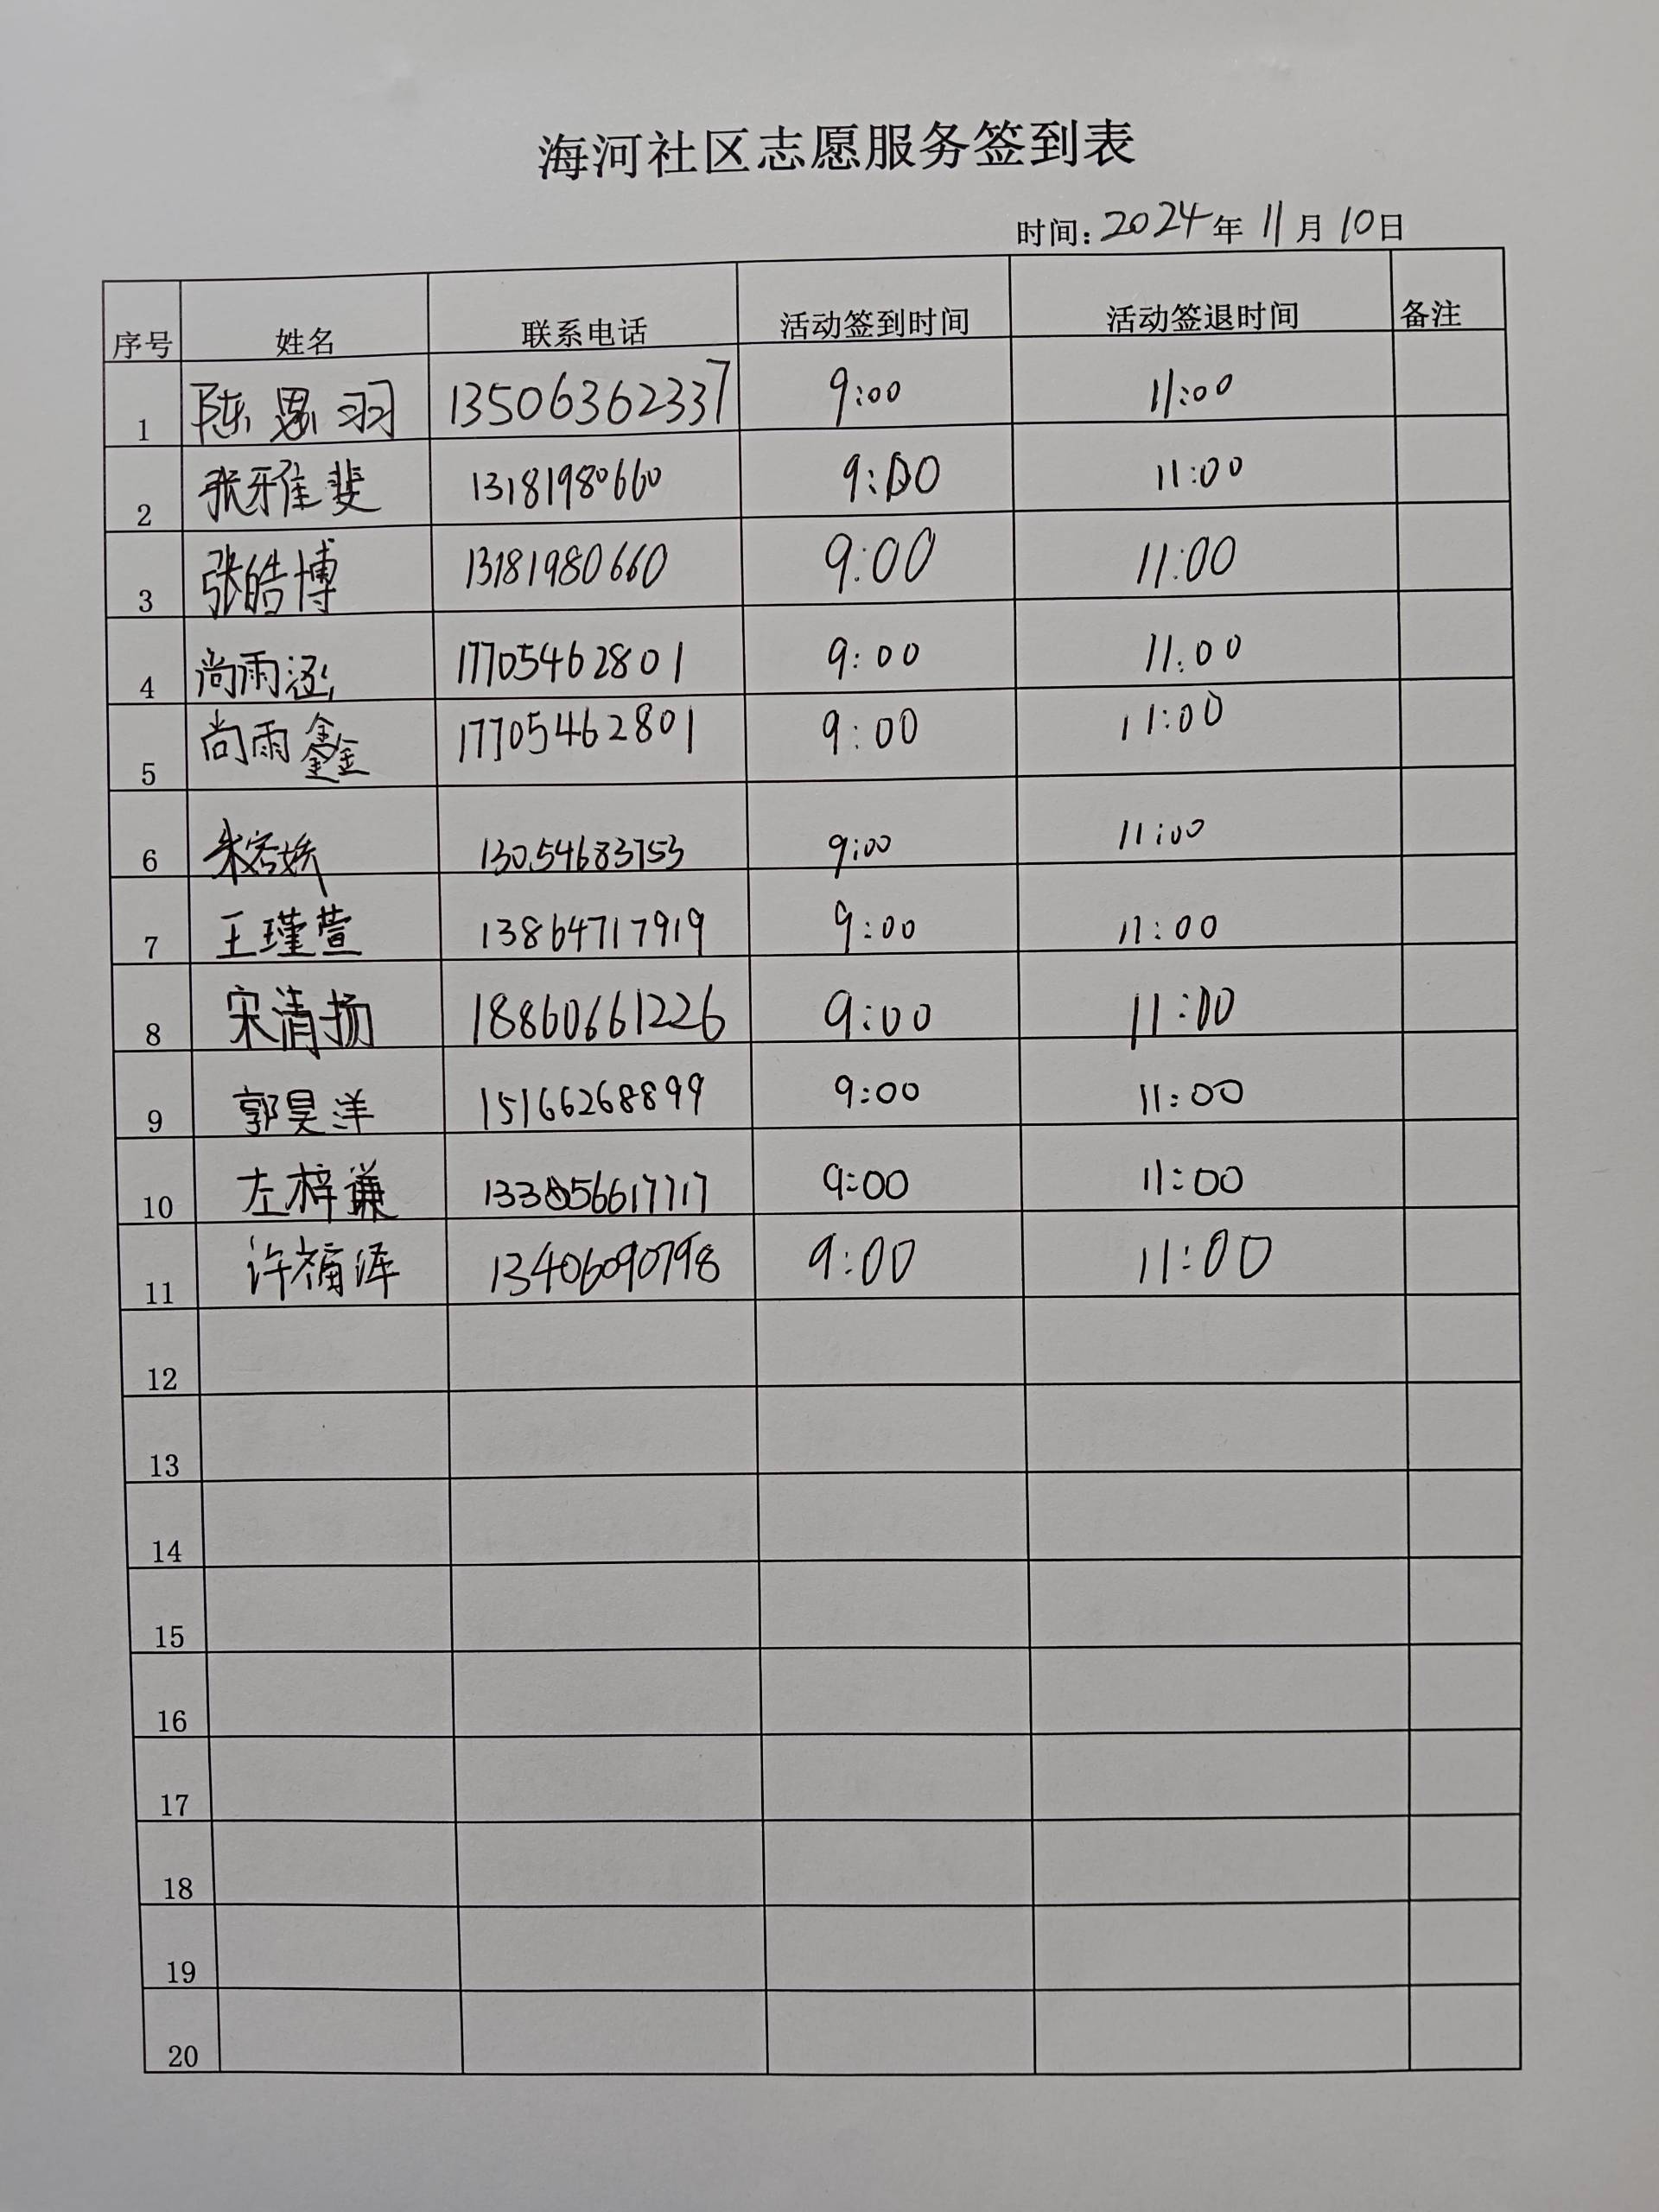 海河社区志愿服务签到表
时间:2024年11月10日
序号 姓名 联系电话 活动签到时间 活动签退时间 备注
1 陈思羽 13506362337 9:00 11:00
2 张雅斐 13181980660 9:00 11:00
3 张皓博 13181980660 9:00 11:00
4 尚雨涵 17705462801 9:00 11:00
5 尚雨鑫 17705462801 9:00 11:00
6 朱容娇 13054683753 9:00 11:00
7 王瑾萱 13864717919 9:00 11:00
8 宋清扬 18860661226 9:00 11:00
9 郭昊洋 15166268899 9:00 11:00
10 左梓谦 9:00 11:00
11 许福泽 13406090798 9:00 11:00
12
13
14
15
16
17
18
19
20